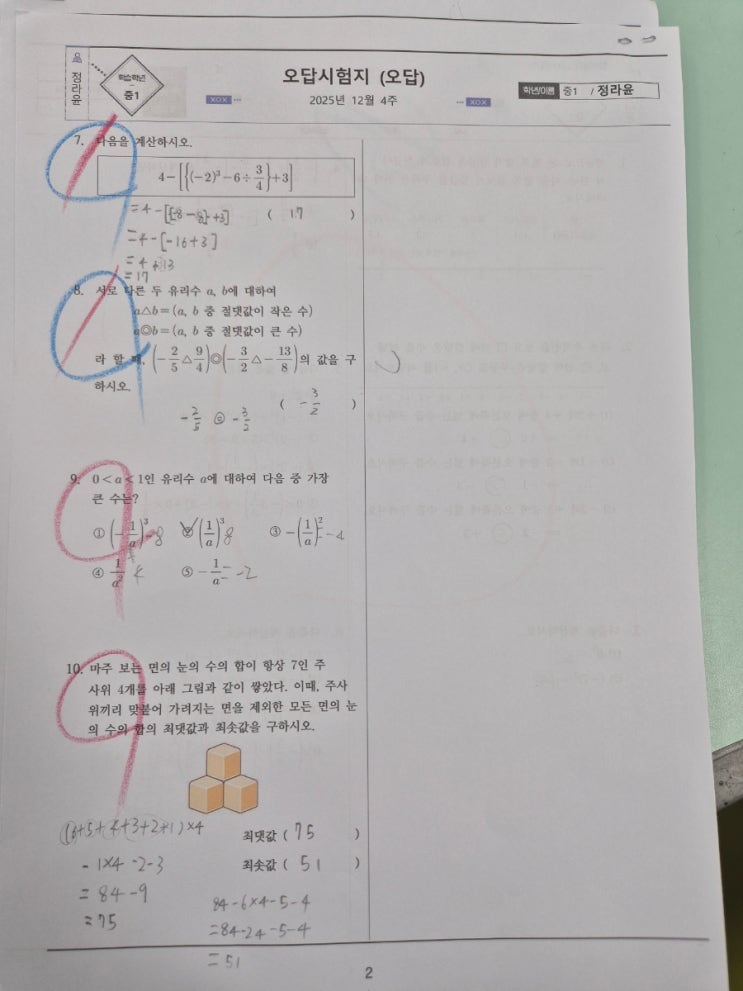 정라윤
학습학년
중1
오답시험지 (오답)
XOX
2025년 12월 4주
XOX
학년/이름 중1 / 정라윤
7. 다음을 계산하시오.
4-[{(-2)³-6÷3/4}+3]
=4-[{-8-8}+3] ( 17 )
=4-[-16+3]
=4+13
=17
8. 서로 다른 두 유리수 a, b에 대하여
a△b=(a, b 중 절댓값이 작은 수)
a◎b=(a, b 중 절댓값이 큰 수)
라 할 때, (-2/5△9/4)◎(-3/2△-13/8)의 값을 구
하시오.
( -3/2 )
-2/5 ◎ -3/2
9. 0<a<1인 유리수 a에 대하여 다음 중 가장
큰 수는?
① (-1/a)³ -8 ② (1/a)³ 8 ③ -(1/a)² = -4
④ 1/a² 4 ⑤ -1/a = -2
10. 마주 보는 면의 눈의 수의 합이 항상 7인 주
사위 4개를 아래 그림과 같이 쌓았다. 이때, 주사
위끼리 맞붙어 가려지는 면을 제외한 모든 면의 눈
의 수의 합의 최댓값과 최솟값을 구하시오.
(6+5+4+3+2+1)×4
최댓값 ( 75 )
-1×4-2-3
최솟값 ( 51 )
=84-9
=75
84-6×4-5-4
=84-24-5-4
=51
2